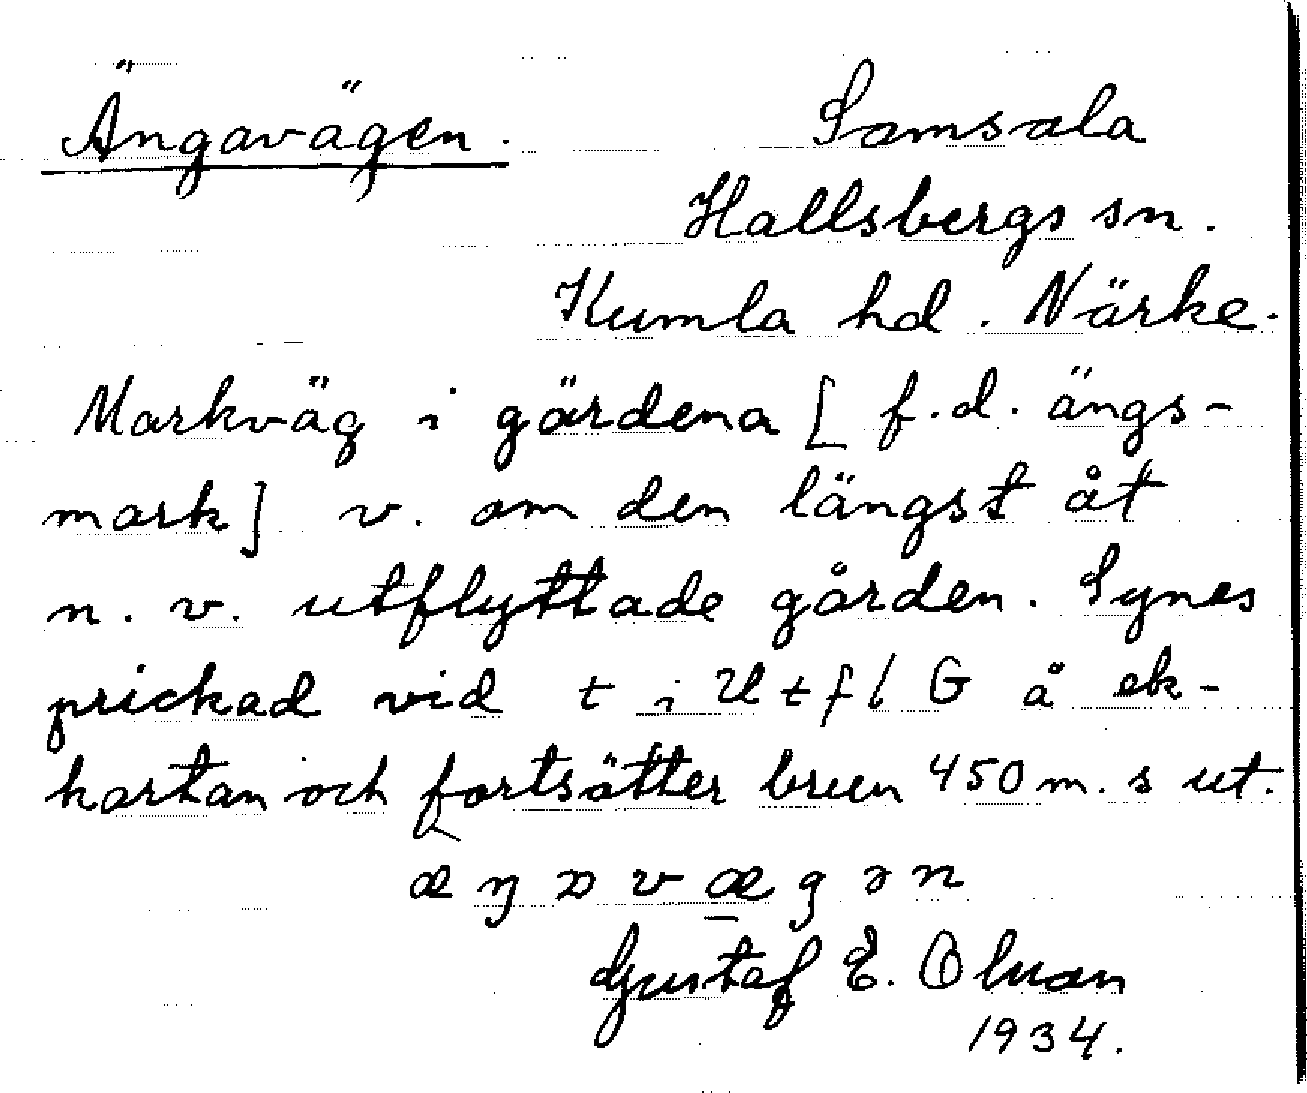 Ängavägen.
Samsala
Hallsbergs sn.
Kumla hd. Närke.
Markväg i gärdena [f.d. ängs-
mark] v. om den längst åt
n. v. utflyttade gården. Synes
prickad vid t i Utfl G å ek-
kartan och fortsätter 450 m. s ut.
æŋɒvægən
Gustaf E. Olsson
1934.